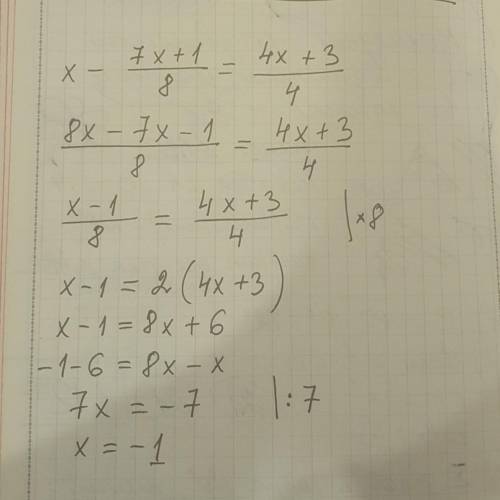 x - (7x+1)/8 = (4x+3)/4
(8x-7x-1)/8 = (4x+3)/4
(x-1)/8 = (4x+3)/4 |×8
x-1 = 2(4x+3)
x-1 = 8x+6
-1-6 = 8x-x
7x = -7 |:7
x = -1